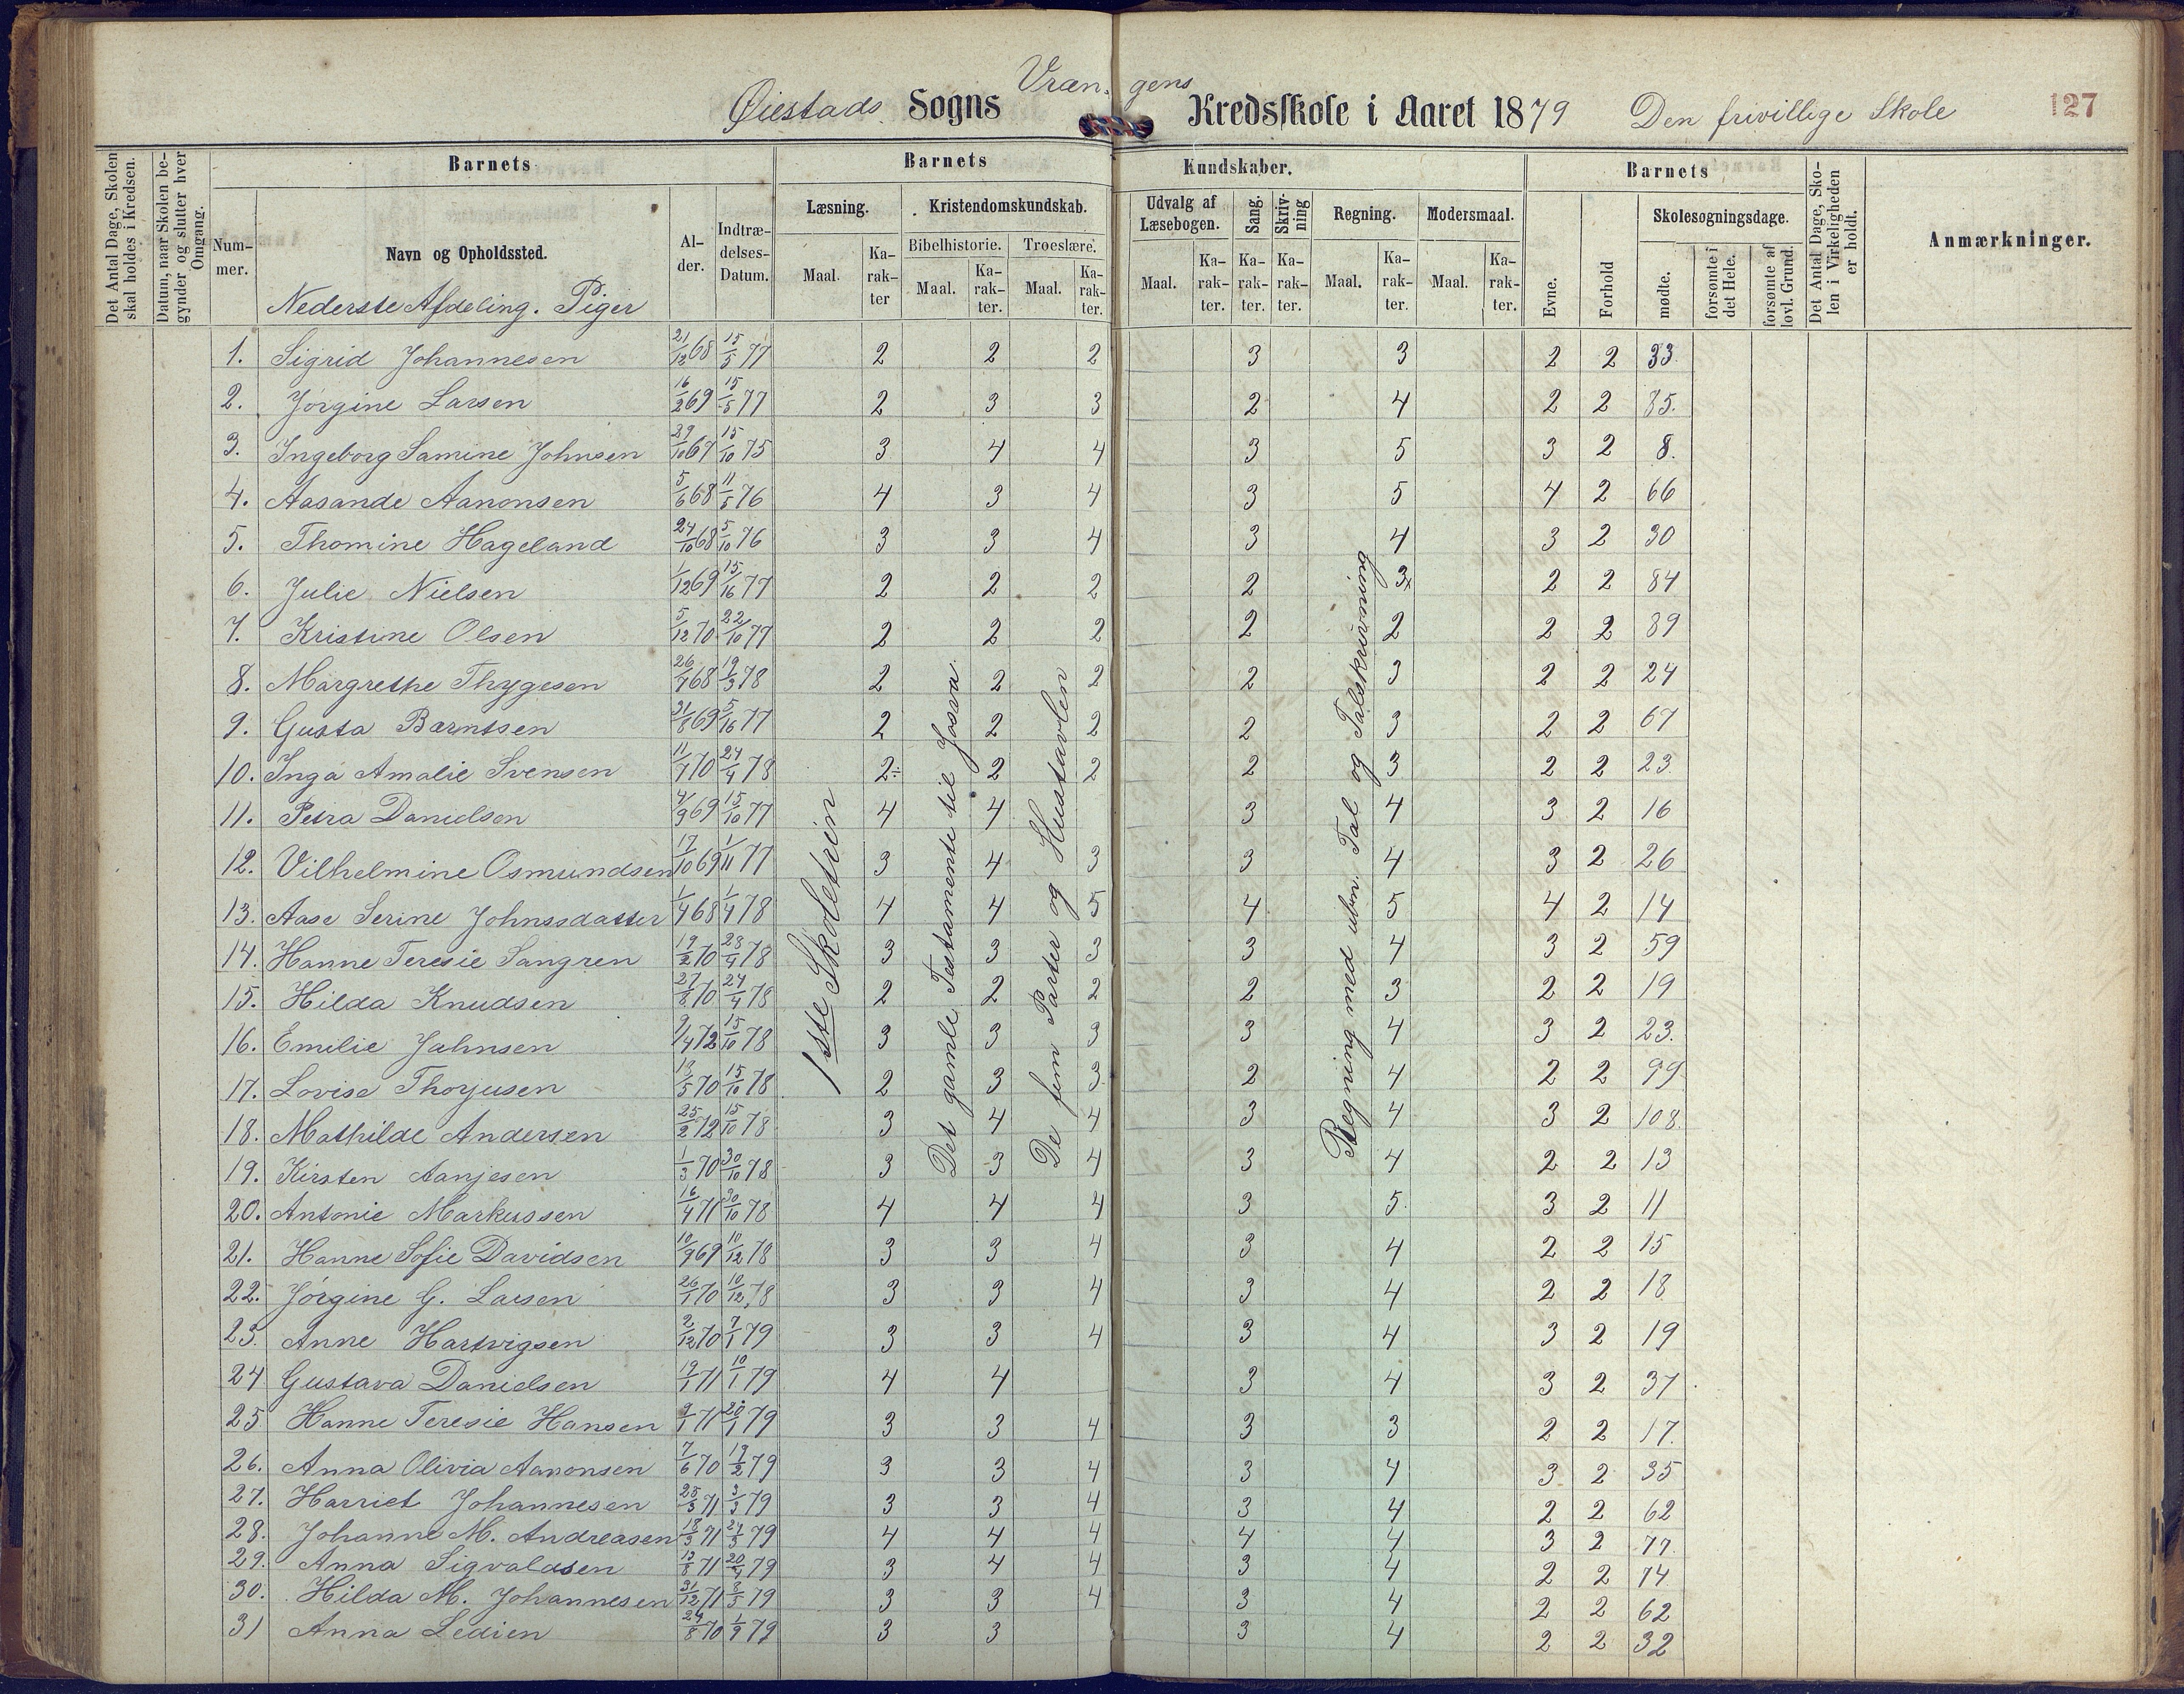 Øiestads Sogns Vræn- gens Kredsskole i Aaret 1879 Den frivillige Skole 127
Det Antal Dage, Skolen skal holdes i Kredsen.
Datum, naar Skolen begynder og slutter hver Omgang.
Barnets Barnets Kundskaber. Barnets
Det Antal Dage, Skolen i Virkeligheden er holdt.
Anmærkninger.
Læsning. Kristendomskundskab. Udvalg af Læsebogen. Sang. Skrivning Regning. Modersmaal. Skolesøgningsdage.
Nummer. Navn og Opholdssted. Alder. Indtrædelses-Datum. Maal. Karakter Bibelhistorie. Troeslære.
Maal. Karakter. Maal. Karakter. Maal. Karakter. Karakter. Karakter. Maal. Karakter. Maal. Karakter. Evne. Forhold mødte. forsømte i det Hele. forsømte af lovl. Grund.
Nederste Afdeling. Piger
1. Sigrid Johannesen 21/12 68 15/5 77 2 2 2 3 3 2 2 33.
2. Jørgine Larsen 16/2 69 15/5 77 2 3 3 2 4 2 2 85.
3. Ingeborg Samine Johnsen 29/10 67 15/10 75 3 4 4 3 5 3 2 8.
4. Aasande Aanonsen 5/6 68 11/5 76 4 3 4 3 5 4 2 66
5. Thomine Hageland 24/10 68 5/10 76 3 3 4 3 4 3 2 30
6. Julie Nielsen 1/12 69 15/16 77 2 2 2 2 3x 2 2 84
7. Kristine Olsen 5/12 70 22/10 77 2 2 2 2 2 2 2 89
8. Margrethe Thygesen 26/4 68 19/3 78 2 2 2 2 3 2 2 24
9. Gusta Barntsen 31/8 69 5/16 77 2 2 2 2 3 2 2 67
10. Inga Amalie Svensen 11/7 70 24/4 78 2÷ 2 2 2 3 2 2 23.
11. Petra Danielson 4/9 69 15/10 77 4 4 3 4 3 2 16
12. Vilhelmine Osmundsen 17/10 69 1/11 77 3 4 3 3 4 3 2 26
13. Aase Serine Johnssdatter 1/4 68 1/4 78 4 4 5 4 5 4 2 14
14. Hanne Teresie Sangren 19/2 70 23/4 78 3 3 3 3 4 3 2 59
15. Hilda Knudsen 27/8 70 24/4 78 2 2 2 2 3 2 2 19
16. Emilie Jahnsen 9/4 72 15/10 78 3 3 3 3 4 3 2 23.
17. Lovise Thorjusen 13/5 70 15/10 78 2 3 3 2 4 2 2 99
18. Mathilde Andersen 25/2 72 15/10 78 3 4 4 3 4 3 2 108.
19. Kirsten Aanjesen 1/3 70 30/10 78 3 3 4 3 4 2 2 13
20. Antonie Markussen 16/4 71 30/10 78 4 4 4 3 5 3 2 11
21. Hanne Sofie Davidsen 10/9 69 10/12 78 3 3 4 3 4 2 2 15
22. Jørgine G. Larsen 26/1 70 10/12 78 3 3 4 3 4 2 2 18
23. Anne Hartvigsen 2/12 70 7/1 79 3 3 4 3 4 3 2 19
24 Gustava Danielsen 19/1 71 10/1 79 4 4 3 4 3 2 37
25 Hanne Teresie Hansen 9/1 71 20/1 79 3 3 4 3 3 2 2 17.
26. Anna Olivia Aanonsen 7/6 70 19/2 79 3 3 4 3 4 3 2 35
27. Harriet Johannesen 25/3 71 3/3 79 3 3 4 3 4 2 2 62
28. Johanne M. Andreasen 18/3 71 24/3 79 4 4 4 4 4 3 2 77.
29. Anna Sigvaldsen 13/8 71 20/4 79 3 4 4 3 4 2 2 74.
30. Hilda M. Johannesen 31/12 71 8/5 79 3 3 4 3 4 2 2 62
31 Anna Ledien 24/8 70 1/9 79 3 3 3 4 2 2 32
1ste Skoletrin
Det gamle Testamente til Josva
De fem Parter og Hustavlen
Regning med ubn. Tal og Talskrivning